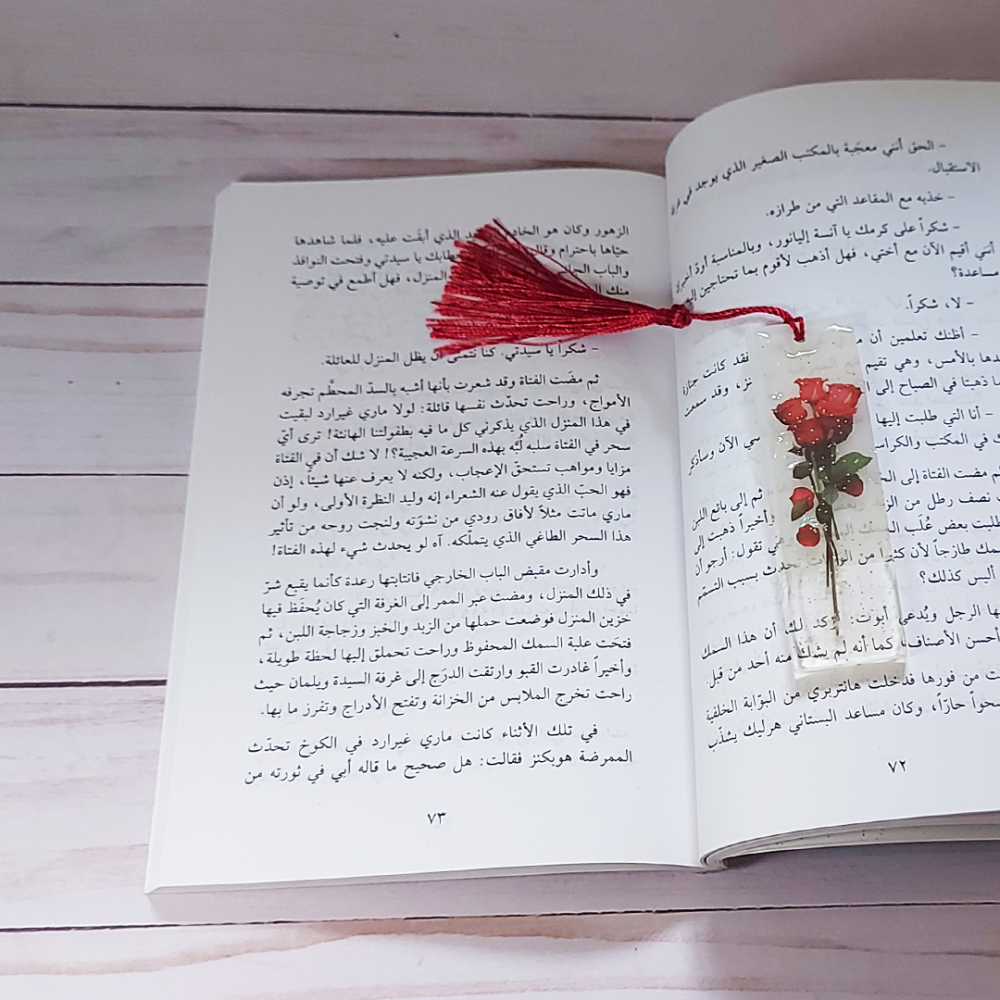 - الحق أنني معجبة بالمكتب الصغير الذي يوجد في غرفة
الاستقبال.
- خذيه مع المقاعد التي من طرازه.
- شكراً على كرمك يا آنسة إليانور، وبالمناسبة أودّ
أنني أقيم الآن مع أختي، فهل أذهب لأقوم بما تحتاجين
مساعدة؟
- لا، شكراً.
- أظنك تعلمين أن فقد كانت جنازة
بالأمس، وهي تقيم وقد سمعت
ذهبنا في الصباح إلى
- أنا التي طلبت إليها الآن وسأذكر
في المكتب
مضت الفتاة إلى ثم إلى بائع اللبن
نصف رطل من وأخيراً ذهبت إلى
طلبت بعض عُلَب تقول: أرجو أن
السمك طازجاً لأن تحدث بسبب التسمّم
أليس كذلك؟
الرجل ويُدعى أبوت: لك أن هذا السمك
أحسن الأصناف، كما أنه لم يشكُ منه أحد من قبل.
من فورها فدخلت هانتربري من البوّابة الخلفية
حارّاً، وكان مساعد البستاني هرليك يشذّب
٧٢
الزهور وكان هو الذي أبقَت عليه، فلما شاهدها
حيّاها باحترام يا سيدتي وفتحت النوافذ
والباب المنزل، فهل أطمع في توصية
منك
- شكراً يا سيدتي. كنا نتمنى أن يظل المنزل للعائلة.
ثم مضَت الفتاة وقد شعرت بأنها أشبه بالسدّ المحطَّم تجرفه
الأمواج، وراحت تحدّث نفسها قائلة: لولا ماري غيرارد لبقيت
في هذا المنزل الذي يذكرني كل ما فيه بطفولتنا الهانئة! ترى أيّ
سحر في الفتاة سلبه لُبّه بهذه السرعة العجيبة؟! لا شك أن في الفتاة
مزايا ومواهب تستحقّ الإعجاب، ولكنه لا يعرف عنها شيئاً، إذن
فهو الحبّ الذي يقول عنه الشعراء إنه وليد النظرة الأولى، ولو أن
ماري ماتت مثلاً لأفاق رودي من نشوَته ولنجت روحه من تأثير
هذا السحر الطاغي الذي يتملّكه. آه لو يحدث شيء لهذه الفتاة!
وأدارت مقبض الباب الخارجي فانتابتها رعدة كأنما يقبع شرّ
في ذلك المنزل، ومضت عبر الممر إلى الغرفة التي كان يُحفَظ فيها
خزين المنزل فوضعت حملها من الزبد والخبز وزجاجة اللبن، ثم
فتحَت علبة السمك المحفوظ وراحت تحملق إليها لحظة طويلة،
وأخيراً غادرت القبو وارتقت الدرَج إلى غرفة السيدة ويلمان حيث
راحت تخرج الملابس من الخزانة وتفتح الأدراج وتفرز ما بها.
في تلك الأثناء كانت ماري غيرارد في الكوخ تحدّث
الممرضة هوبكنز فقالت: هل صحيح ما قاله أبي في ثورته من
٧٣